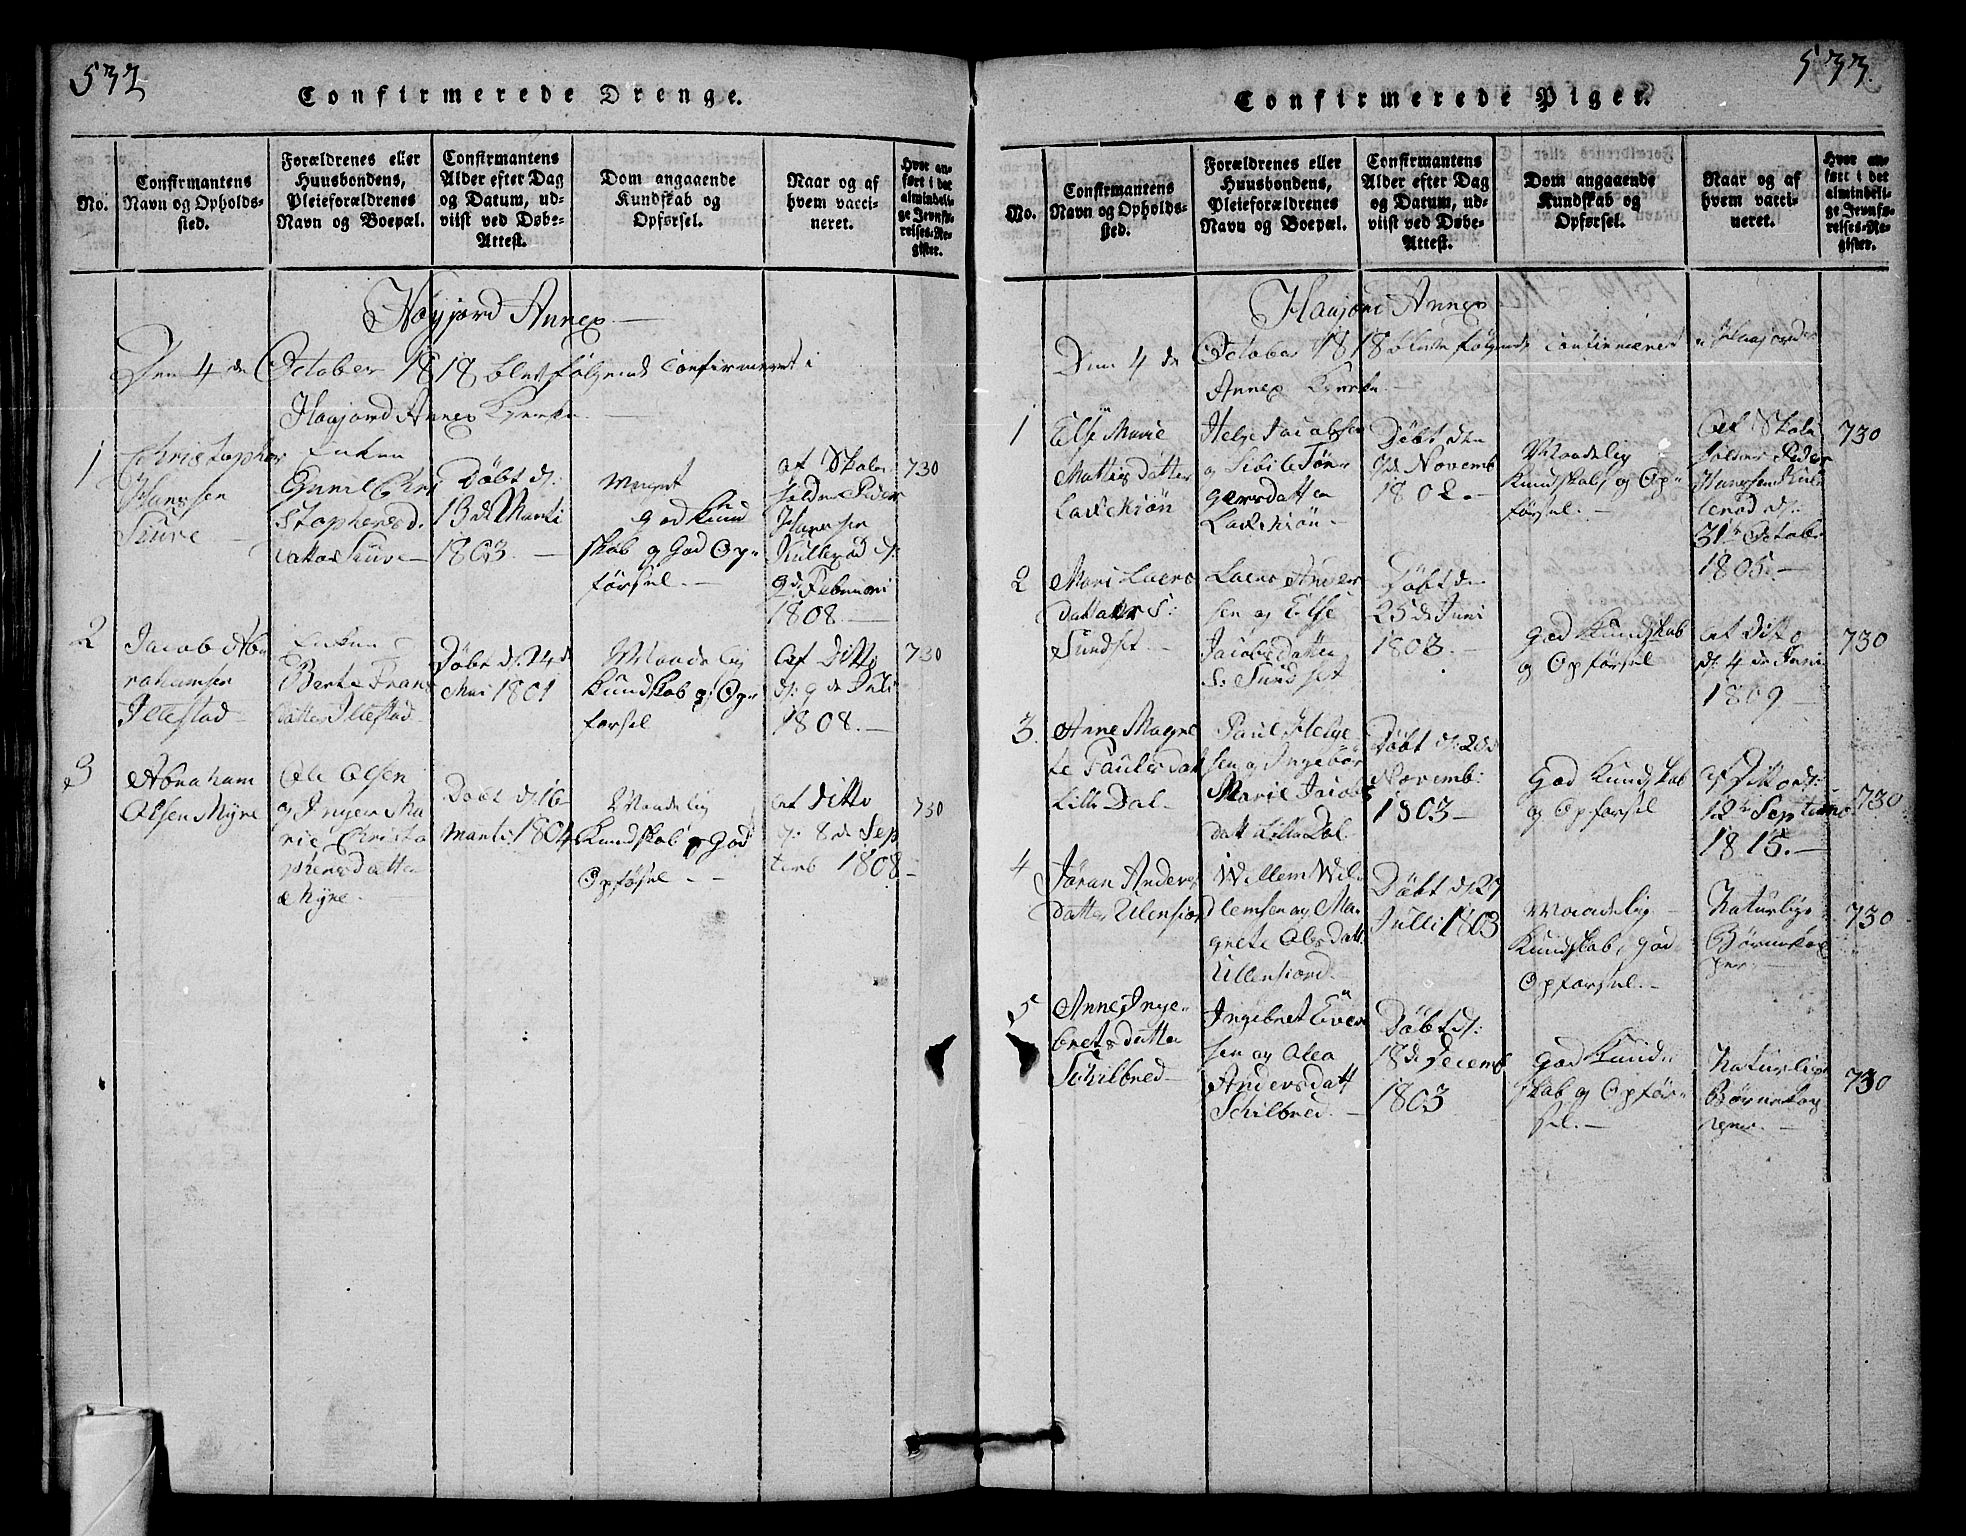 532
Confirmerede Drenge.
No.
Confirmantens
Navn og Opholds-
sted.
Forældrenes eller
Huusbondens,
Pleieforældrenes
Navn og Boepæl.
Confirmantens
Alder efter Dag
og Datum, ud-
viist ved Døbe-
Attest.
Dom angaaende
Kundskab og
Opførsel.
Naar og af
hvem vacci-
neret.
Hvor an-
ført i det
almindeli-
ge Jevnfø-
relses-Re-
gister.
Høyjord Annex
Den 4de October 1818 blev følgende Confirmeret i
Høyjord Annex Kyrke
1
Christopher
Hanssen
Siúve
Enken
Gunil Chri
stophersd
atter Siúve
Døbt d:
13de Marti
1803.
Meget
god Kúnd
skab og God Op=
førsel.
af Skole
holder Peder
Hanssen
Kúllerød d:
9de Februari
1808.
730
2
Jacob Ab
rahamsen
Illestad
Enken
Berte Frans
datter Illestad
Døbt d. 24de
Mai 1801
Maadelig
Kúndskab og Op=
førsel
af Ditto
d: 9de Júli
1808.
730
3
Abraham
Olsen Myre
Ole Olsen
og Inger Ma
rie Christo
phersdatter
Myre.
Døbt d: 16
Marti 1804
Maadelig
Kúndskab og God
Opførsel
af Ditto
d: 8de Sep
temb 1808
730
533.
Confirmerede Piger.
No.
Confirmantens
Navn og Opholds-
sted.
Forældrenes eller
Huusbondens,
Pleieforældrenes
Navn og Boepæl.
Confirmantens
Alder efter Dag
og Datum, ud-
viist ved Døbe-
Attest.
Dom angaaende
Kundskab og
Opførsel.
Naar og af
hvem vacci-
neret.
Hvor an-
ført i det
almindeli-
ge Jevnfø-
relses-Re-
gister.
Høyjord Annex
Den 4de October 1818 blev følgende Confirmeret i Høyjord
Annex Kyrke
1
Else Marie
Mattisdatter
Helge Jacobsen
og Sibile Tøn
gersdatter
Døbt den
Novemb
1802.
Maadelig
Kundskab og Op=
førsel.
af Skole
holder Peder
Hanssen Kúl
lerød d:
31te Octob
1805.
730
2
Mari Laers
datter S:
Súndset
Laers Ander
sen og Else
Jacobsdatter
S: Súndset
Døbt den
25de Júni
1803.
God Kúndskab
og Opførsel
af Ditto
d: 4de Júni
1809
730
3.
Anne Magre
te Paulsdat
Lille Dal
Paul Helge
sen og Ingebør
Marie Jacobs
datt Lille Dal.
Døbt d: 28
Novemb:
1803
God Kundskab
og Opførsel
af Ditto d:
12te Septemb
1815.
730
4
Jøran Anders
datter Ulensiør
Willem Wil
lemsen og Ma
grete Olsdatt
Ullensiord
Døbt d: 27
Julli 1803
Maadelig
Kundskab, god
Opførsel.
Naturlige
Børnekop
per.
730
5
Anne Inge=
bretsdatter
Schilbred
Ingebret Ever
sen og Olea
Andersdatt
Schilbred.
Døbt d:
18de Decemb
1803
God Kúnd=
skab og Opfør=
sel.
Naturlige
Børnekop
per.
730